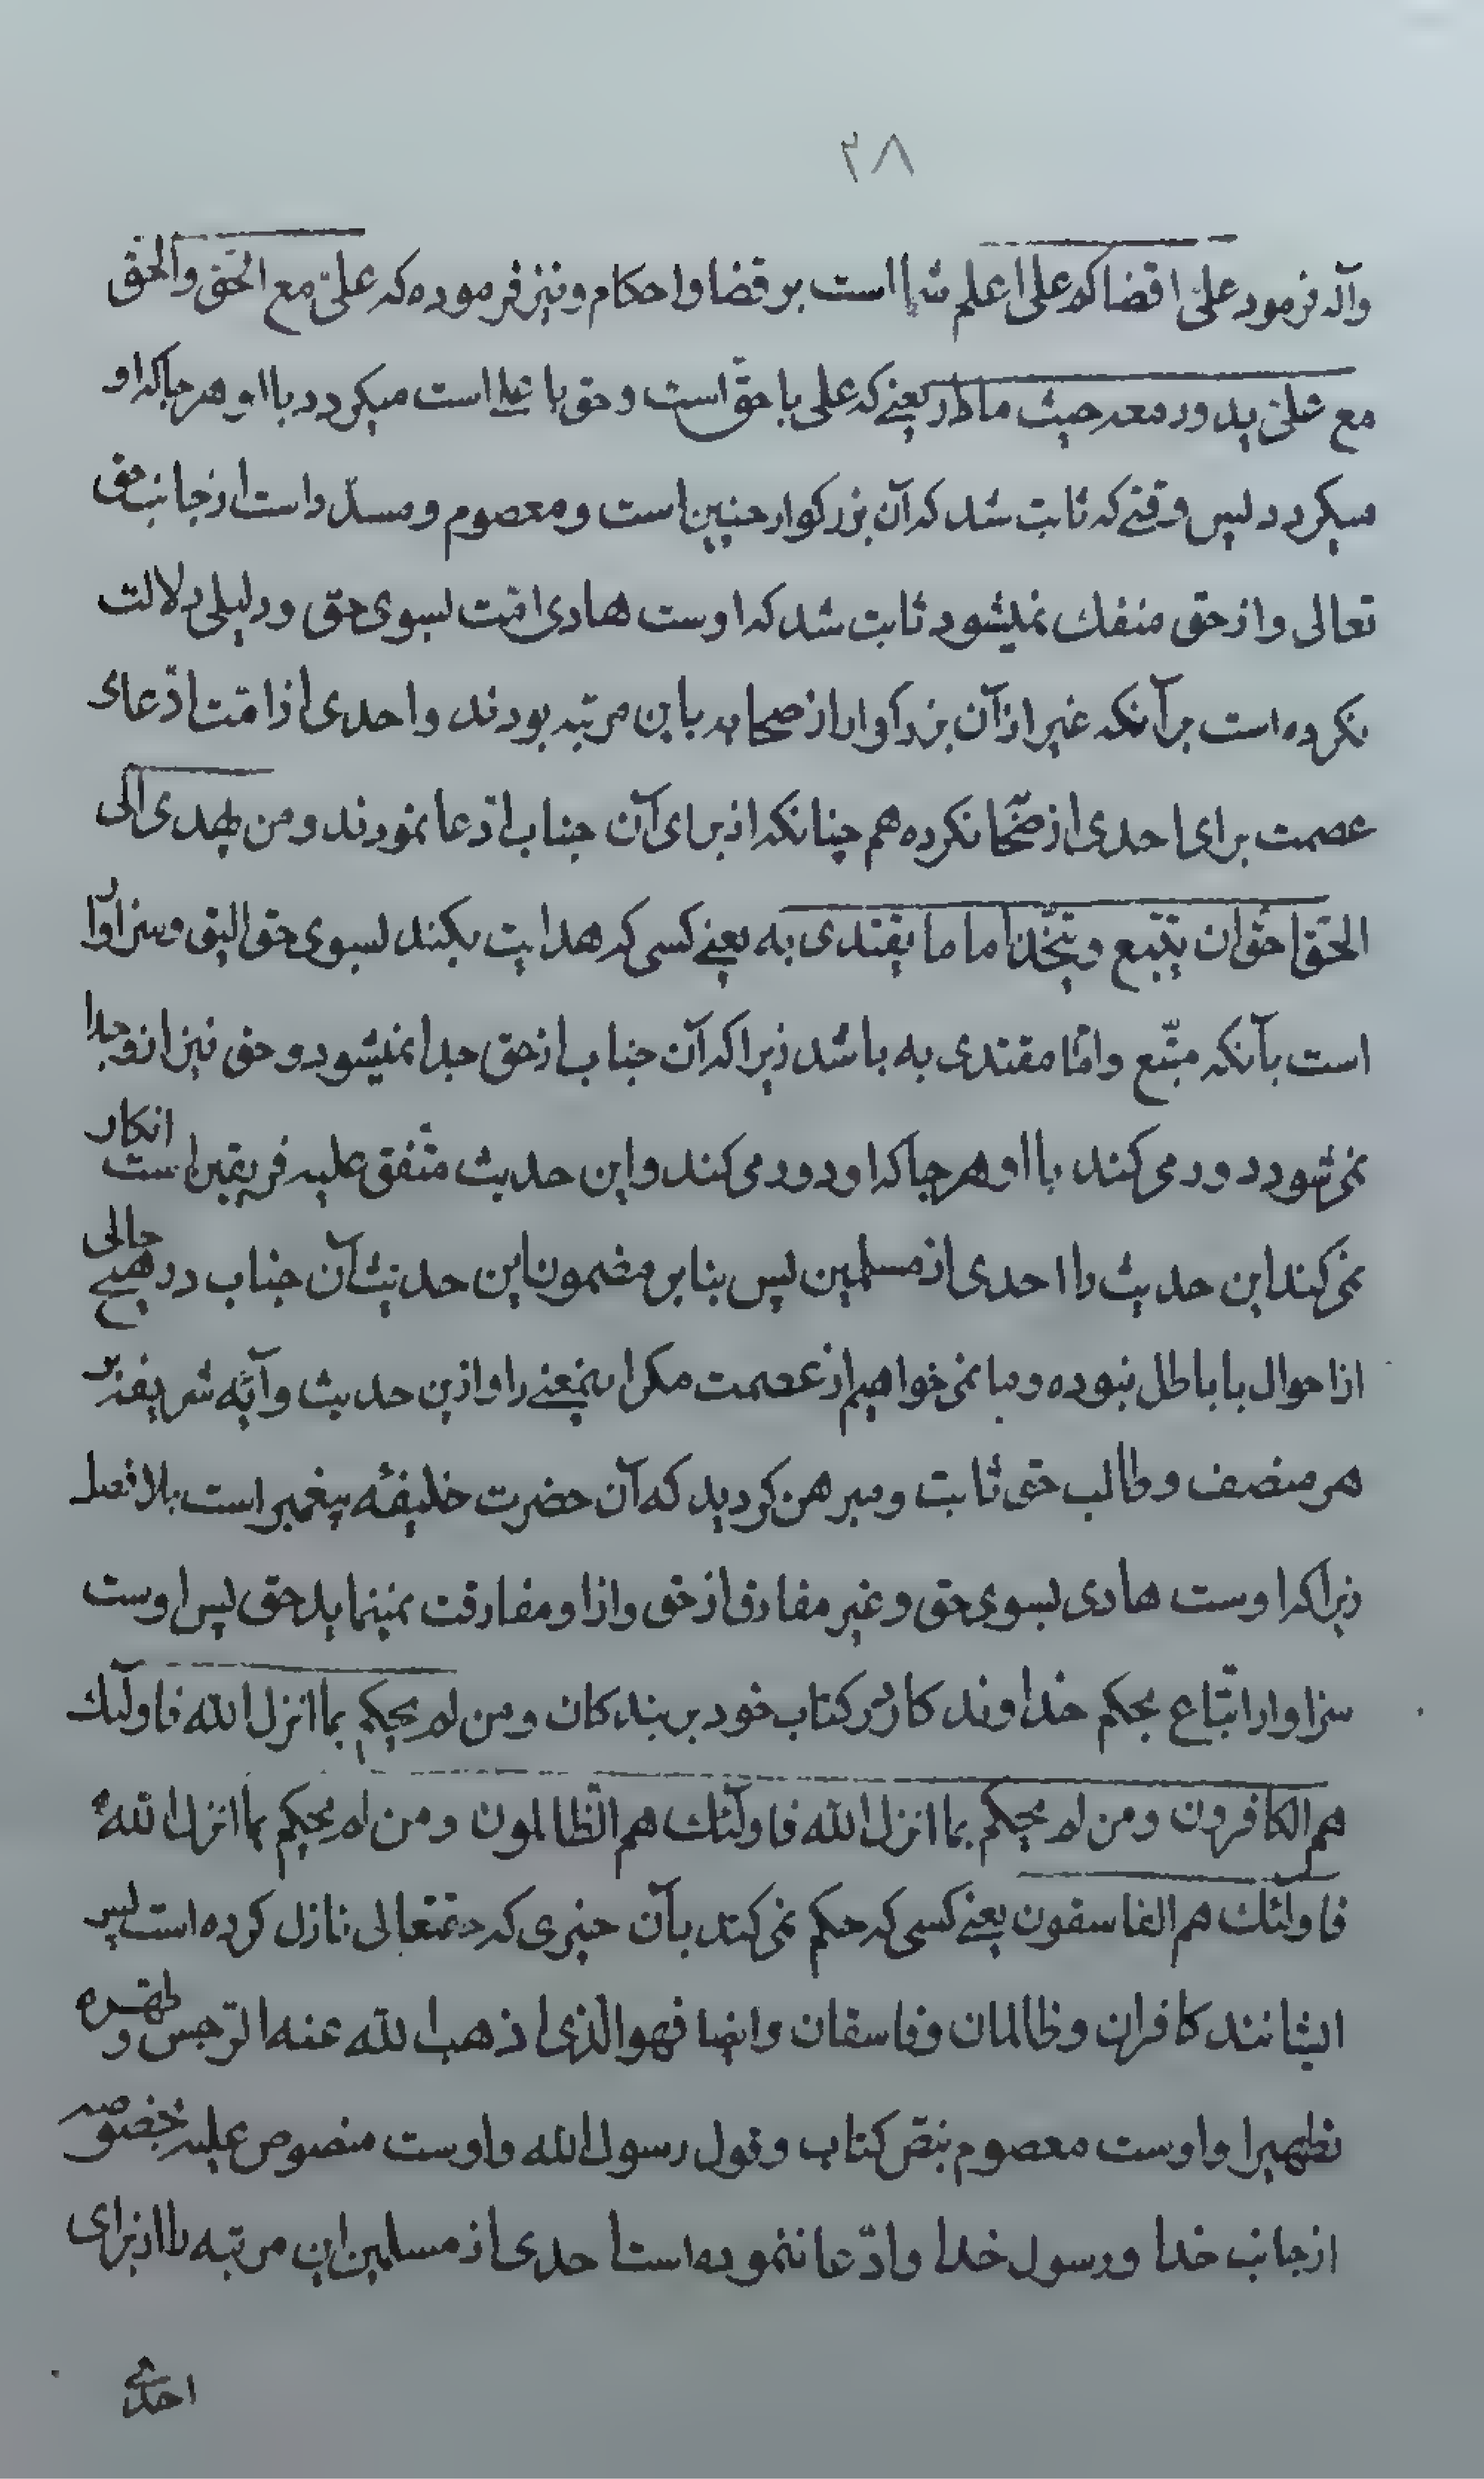 ۲۸
وآله فرمود علیّ اقضاکم علی اعلم شما است بر قضا و احکام و نیز فرموده که علیّ مع الحق والحق
مع علیّ یدور معه حیث ما دار یعنے که علی با حقّ است و حق با علی است میکردد با او هر جا که او
میکردد پس وقتے که ثابت شد که آن بزرکوار چنین است و معصوم و مسدّد است از جانب حق
تعالی و از حق منفک نمیشود ثابت شد که اوست هادی امّت بسوی حق و دلیلی دلالت
نکرده است بر آنکه غیر از آن بزرکوار از صحابه باین مرتبه بودند و احدی از امّت ادّعای
عصمت برای احدی از صحّابه نکرده هم چنانکه از برای آن جناب ادّعا نمودند و من یهدی الی
الحقّ احقّ ان یتّبع و یتّخذ اماما یقتدی به یعنے کسی که هدایت بکند بسوی حق الیق و سزاوار
است بآنکه متّبع و امّا مقتدی به باشد زیرا که آن جناب از حق جدا نمیشود و حق نیز از او جدا
نمی شود دور می کند با او هر جا که او دور می کند و این حدیث متّفق علیه فریقین است انکار
نمی کند این حدیث را احدی از مسلمین پس بنا بر مضمون این حدیث آن جناب در هیچ حالی
از احوال با باطل نبوده و ما نمی خواهیم از عصمت مکر اینمعنے را و ازین حدیث و آیه شریفه بر
هر منصف و طالب حق ثابت و مبرهن کردید که آن حضرت خلیفه پیغمبر است بلا فصل
زیرا که اوست هادی بسوی حق و غیر مفارق از حق و از او مفارقت نمینماید حق پس اوست
سزاوار اتّباع بحکم خداوند کار در کتاب خود بر بندکان و من لم یحکم بما انزل الله فاولئک
هم الکافرون و من لم یحکم بما انزل الله فاولئک هم الظّالمون و من لم یحکم بما انزل اللهُ
فاولئک هم الفاسقون یعنے کسی که حکم نمی کند بآن چیزی که حقتعالی نازل کرده است پس
ایشانند کافران و ظالمان و فاسقان و ایضا فهو الّذی اذهب الله عنه الرّجس و طهّره
تطهیرا و اوست معصوم بنصّ کتاب و قول رسول الله و اوست منصوص علیه بخصوصه
از جانب خدا و رسول خدا و ادّعا ننموده است احدی از مسلمین این مرتبه را از برای
احدی